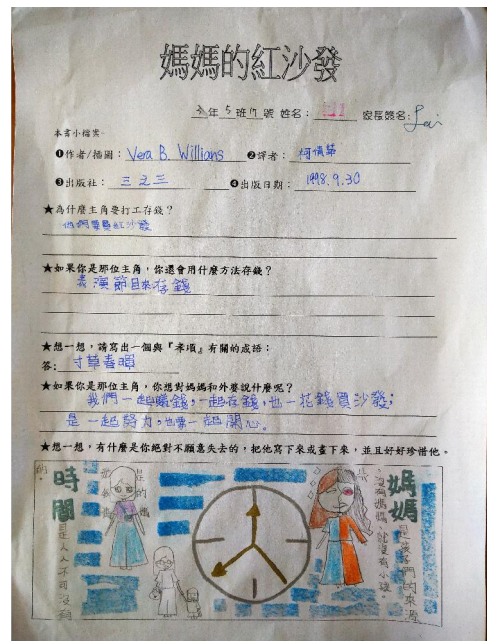 媽媽的紅沙發
年5班 號 姓名： 家長簽名：
本書小檔案-
❶作者/插圖：Vera B. Willians ❷譯者：柯倩華
❸出版社：三之三 ❹出版日期：1998.9.30
★為什麼主角要打工存錢？
他們要買紅沙發
★如果你是那位主角，你還會用什麼方法存錢？
表演節目來存錢
★想一想，請寫出一個與『孝順』有關的成語：
答：寸草春暉
★如果你是那位主角，你想對媽媽和外婆說什麼呢？
我們一起賺錢，一起存錢，也一花錢買沙發，
是一起努力，也一起開心。
★想一想，有什麼是你絕對不願意失去的，把他寫下來或畫下來，並且好好珍惜他。
時間
是人人不可沒有
的。
媽媽
是孩子們的來源
，沒有媽媽，就沒有小孩。